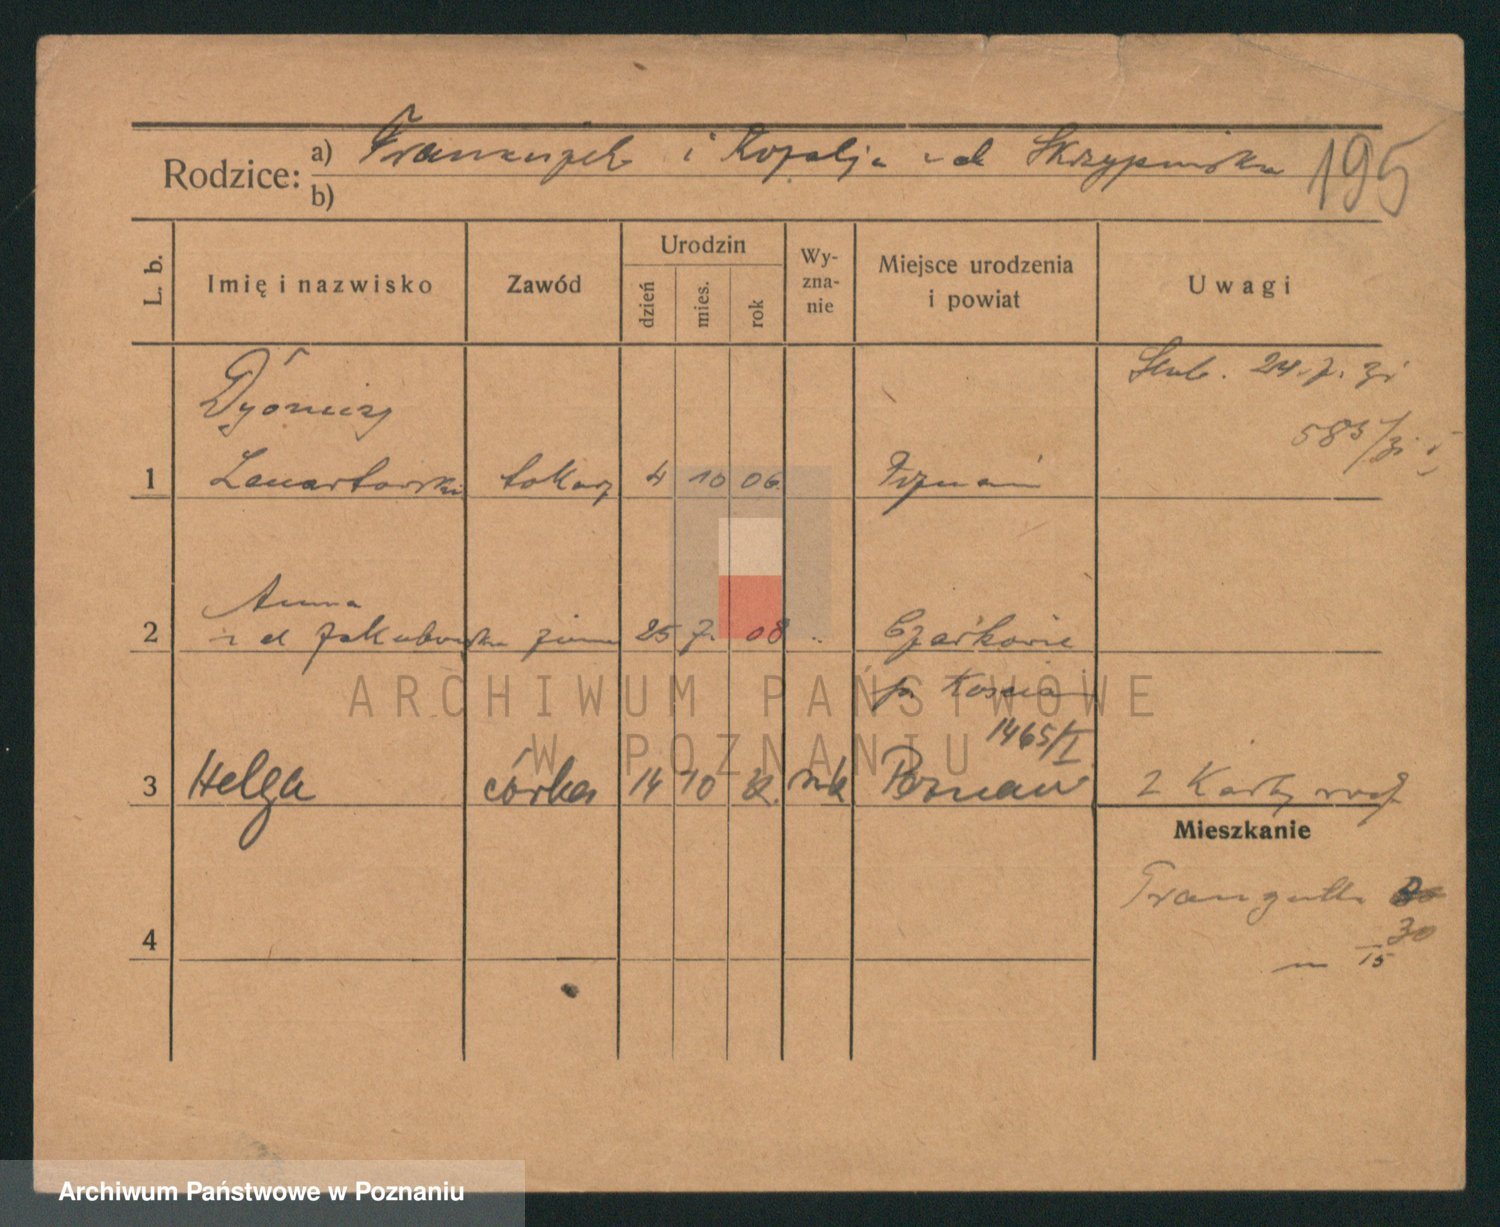 Rodzice: a) Franciszek i Rozalja z d. Skrzypińska 195
b)
L. b. Imię i nazwisko Zawód Urodzin dzień mies. rok Wy-zna-nie Miejsce urodzenia i powiat Uwagi
Ślub. 24. 7. 31
583/31
Dyonizy
1 Lenartowski tokarz 4 10 06 Poznań
Anna
2 z d Jakubowska żona 25 7. 08 Czarkowie
p. Kościan
1465/I
3 Helga córka 14 10 rk Poznań 2 Karty
Mieszkanie
4
30
m 15
ARCHIWUM PAŃSTWOWE
W POZNANIU
Archiwum Państwowe w Poznaniu